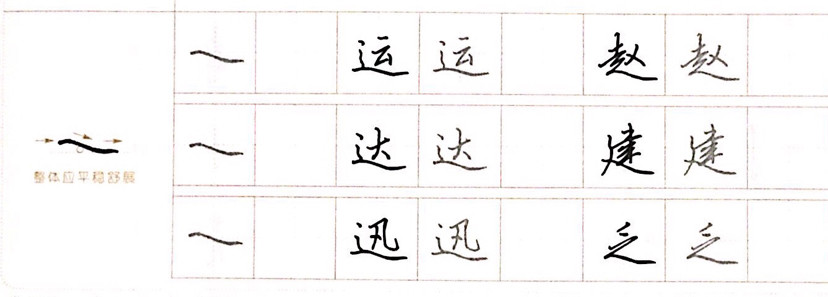 运 运 赵 赵
整体应平稳舒展
达 达 建 建
迅 迅 乏 乏